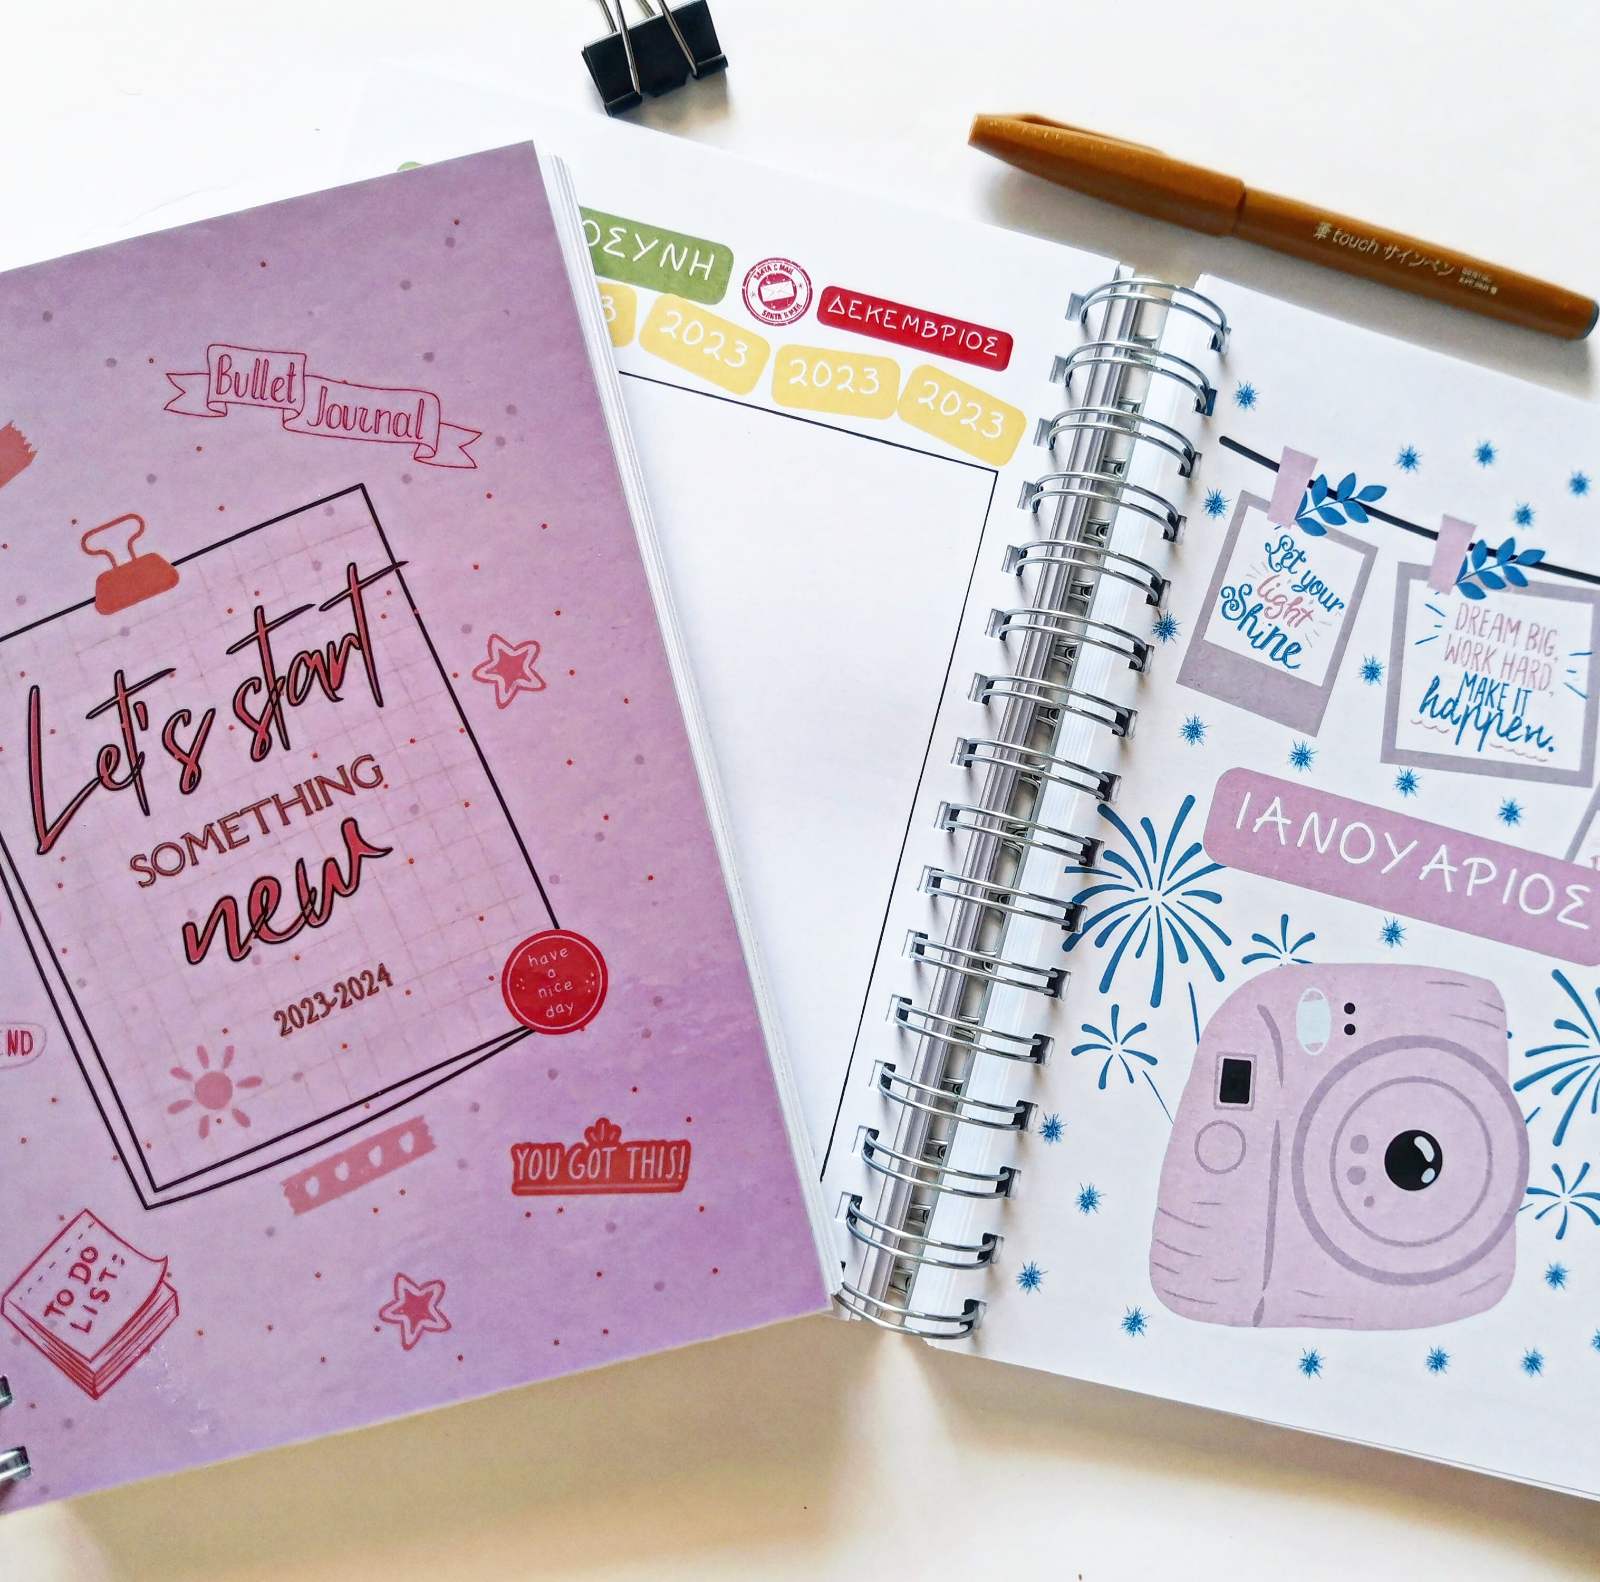 Bullet
Journal
Let's start
SOMETHING
new
2023-2024
have
a
nice
day
YOU GOT THIS!
TO DO
LIST:
ΔΕΚΕΜΒΡΙΟΣ
SANTA'S MAIL
2023
2023
2023
touch サインペン
Let your
light
Shine
DREAM BIG,
WORK HARD,
MAKE IT
happen.
ΙΑΝΟΥΑΡΙΟΣ